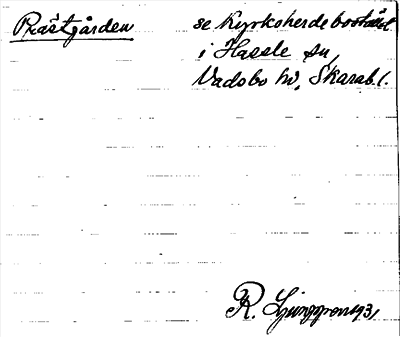 Prästgården se Kyrkoherdebostället
i Hassle sn,
Vadsbo hd, Skarab. l.
R. Ljunggren 1931